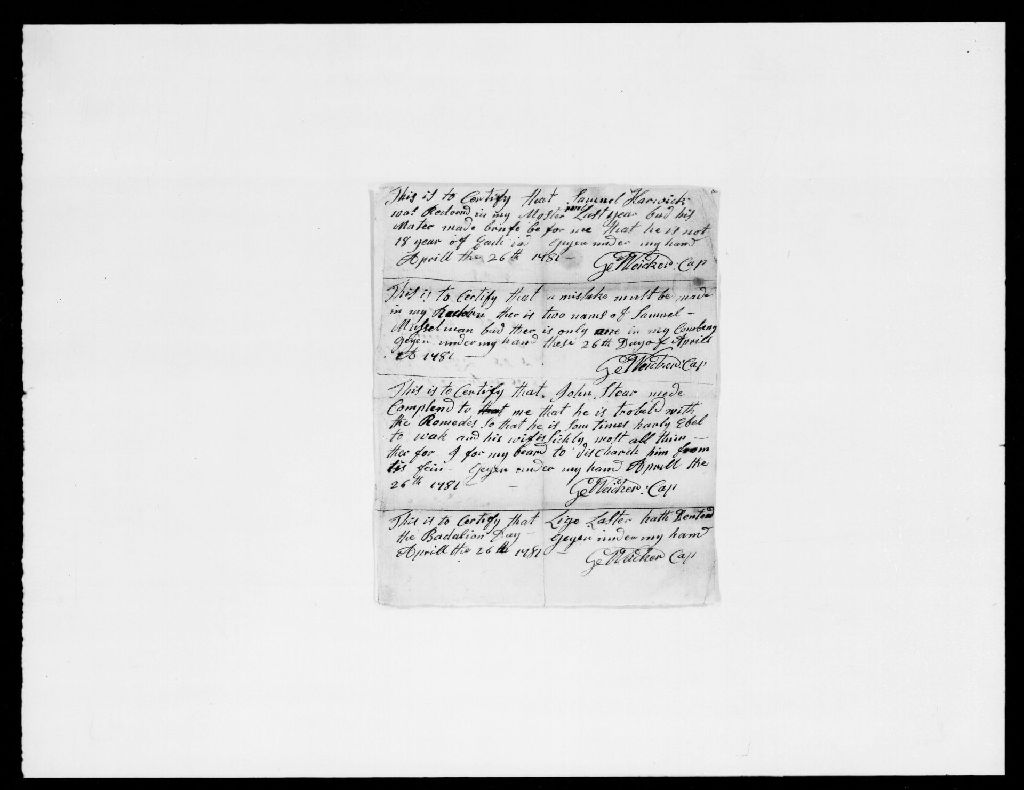 This is to Certify that Samuel Harwick
was Retorend in my Moster Last year bud his
Mater made briefe be for me that he is not
18 year of Geyen under my hand
Aprill the 26th 1781
Ge Weicker Cap
This is to Certify that a mistake must be made
in my ther is two name of Samuel
Musselman bud ther is only one in my Combeny
Geyen under my hand these 26th Day of Aprill
1781
Ge Weicker Cap
This is to Certify that John Stour made
Complend to that me that he is trobele with
the Romedes so that he is som times harly Ebel
to wak and his wife is sickly most all thim
ther for I for my beard to discharch him from
his fein Geyen under my hand Aprill the
26th 1781
Ge Weicker Cap
This is to Certify that Lastor hath
the Badalion Day Geyen under my hand
Aprill the 26th 1781
Ge Weicker Cap